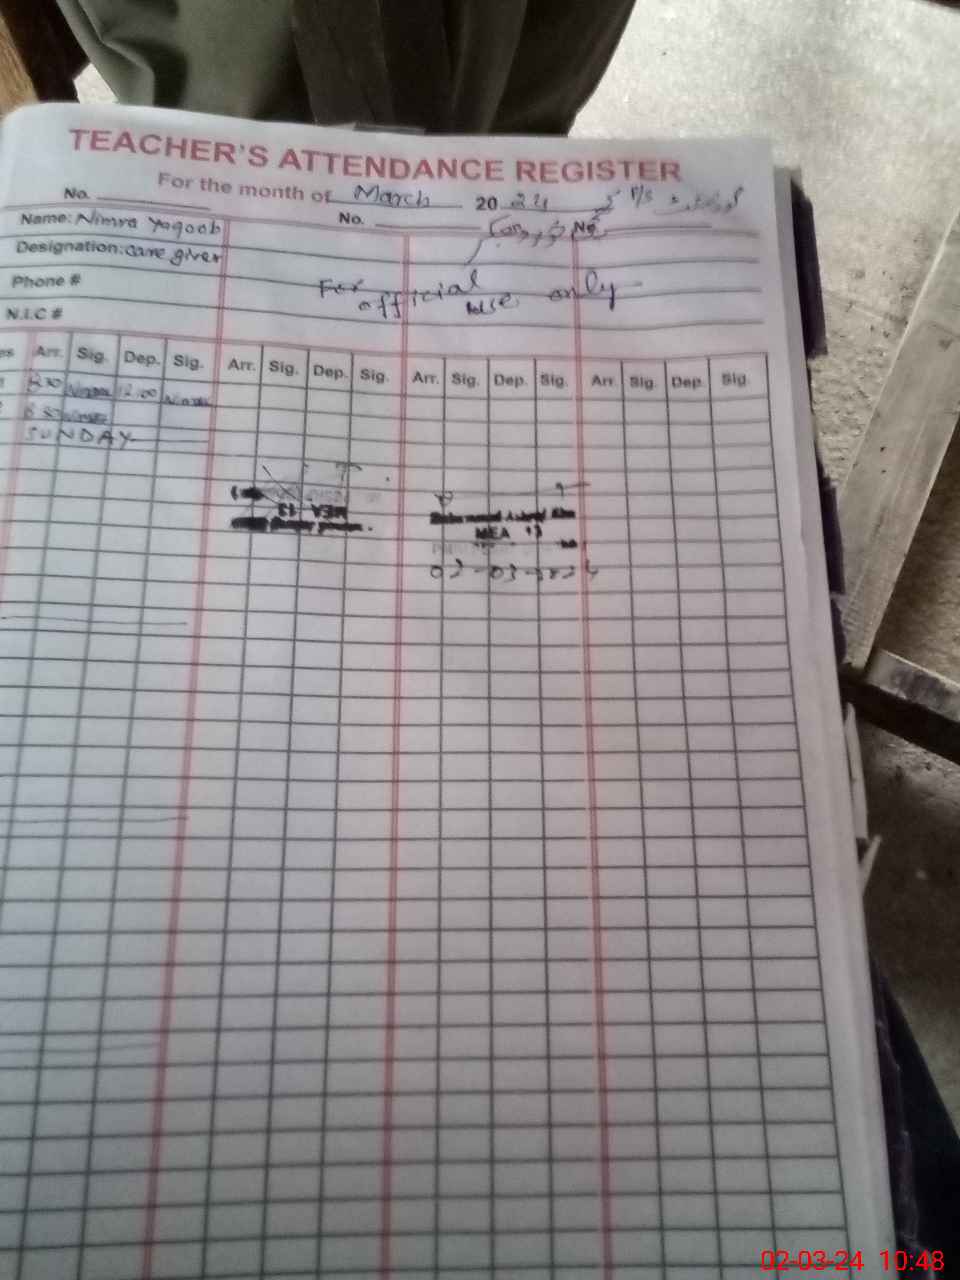 TEACHER'S ATTENDANCE REGISTER
For the month of March 2024
No. No. No.
Name: Nimra Yaqoob
Designation: care giver
Phone #
For official use only
N.I.C #
Arr. Sig. Dep. Sig. Arr. Sig. Dep. Sig. Arr. Sig. Dep. Sig. Arr. Sig. Dep. Sig.
8:30 Nimra 12:00 Nimra
8:30 Nimra
SUNDAY
MEA 13
MEA 13
02-03-2024
02-03-24 10:48